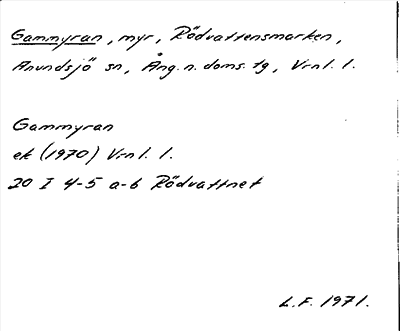 Gammyran, myr, Rödvattensmarken,
Anundsjö sn, Ång. n. doms. tg, Vrnl. l.
Gammyran
ek (1970) Vrnl. l.
20 I 4-5 a-b Rödvattnet
L.F. 1971.